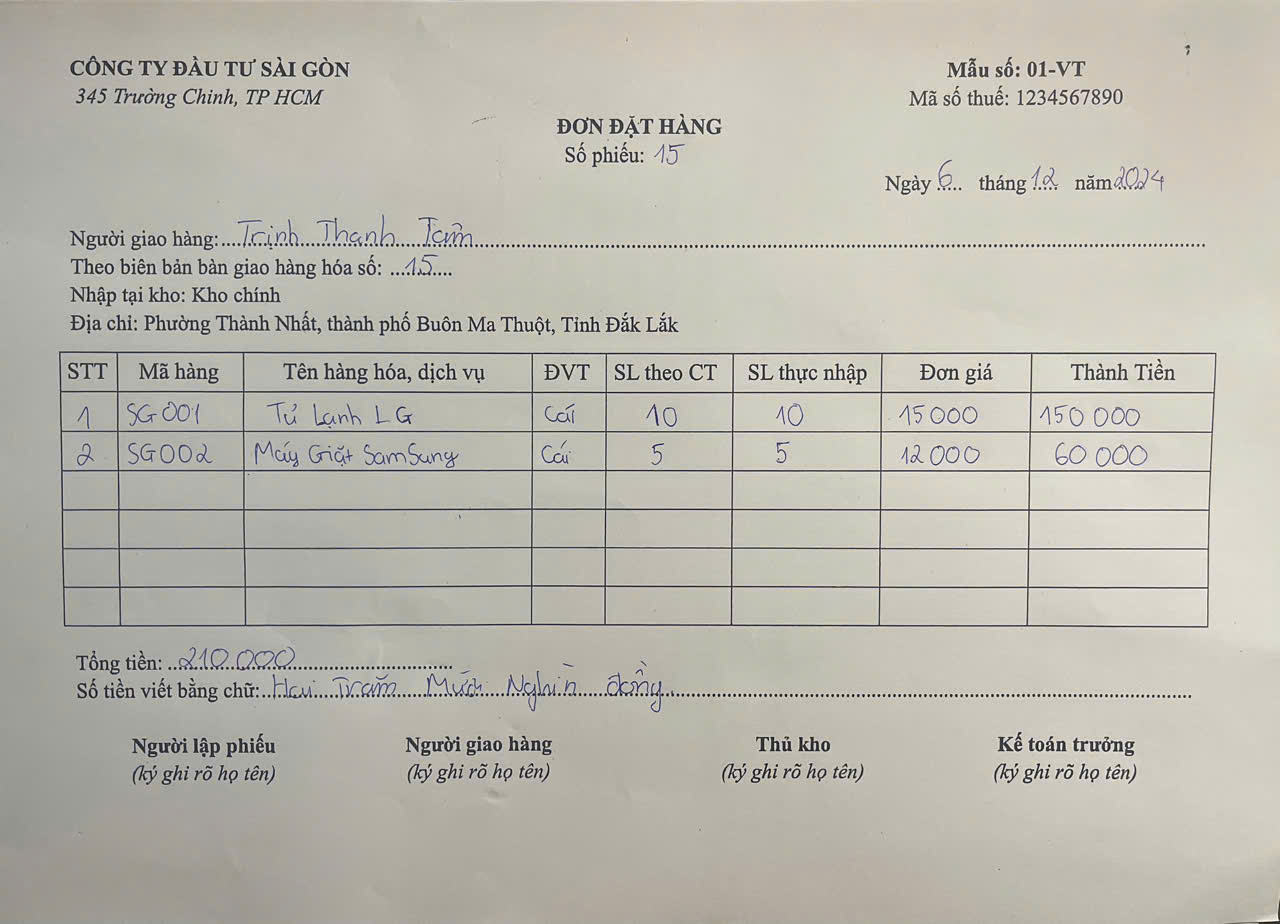 CÔNG TY ĐẦU TƯ SÀI GÒN
345 Trường Chinh, TP HCM
Mẫu số: 01-VT
Mã số thuế: 1234567890
ĐƠN ĐẶT HÀNG
Số phiếu: 15
Ngày 6 tháng 12 năm 2024
Người giao hàng: Trịnh Thanh Tâm
Theo biên bản bàn giao hàng hóa số: 15
Nhập tại kho: Kho chính
Địa chỉ: Phường Thành Nhất, thành phố Buôn Ma Thuột, Tỉnh Đắk Lắk
STT Mã hàng Tên hàng hóa, dịch vụ ĐVT SL theo CT SL thực nhập Đơn giá Thành Tiền
1 SG001 Tủ Lạnh LG Cái 10 10 15000 150 000
2 SG002 Máy Giặt SamSung Cái 5 5 12 000 60 000
Tổng tiền: 210.000
Số tiền viết bằng chữ: Hai Trăm Mười Nghìn đồng
Người lập phiếu Người giao hàng Thủ kho Kế toán trưởng
(ký ghi rõ họ tên) (ký ghi rõ họ tên) (ký ghi rõ họ tên) (ký ghi rõ họ tên)